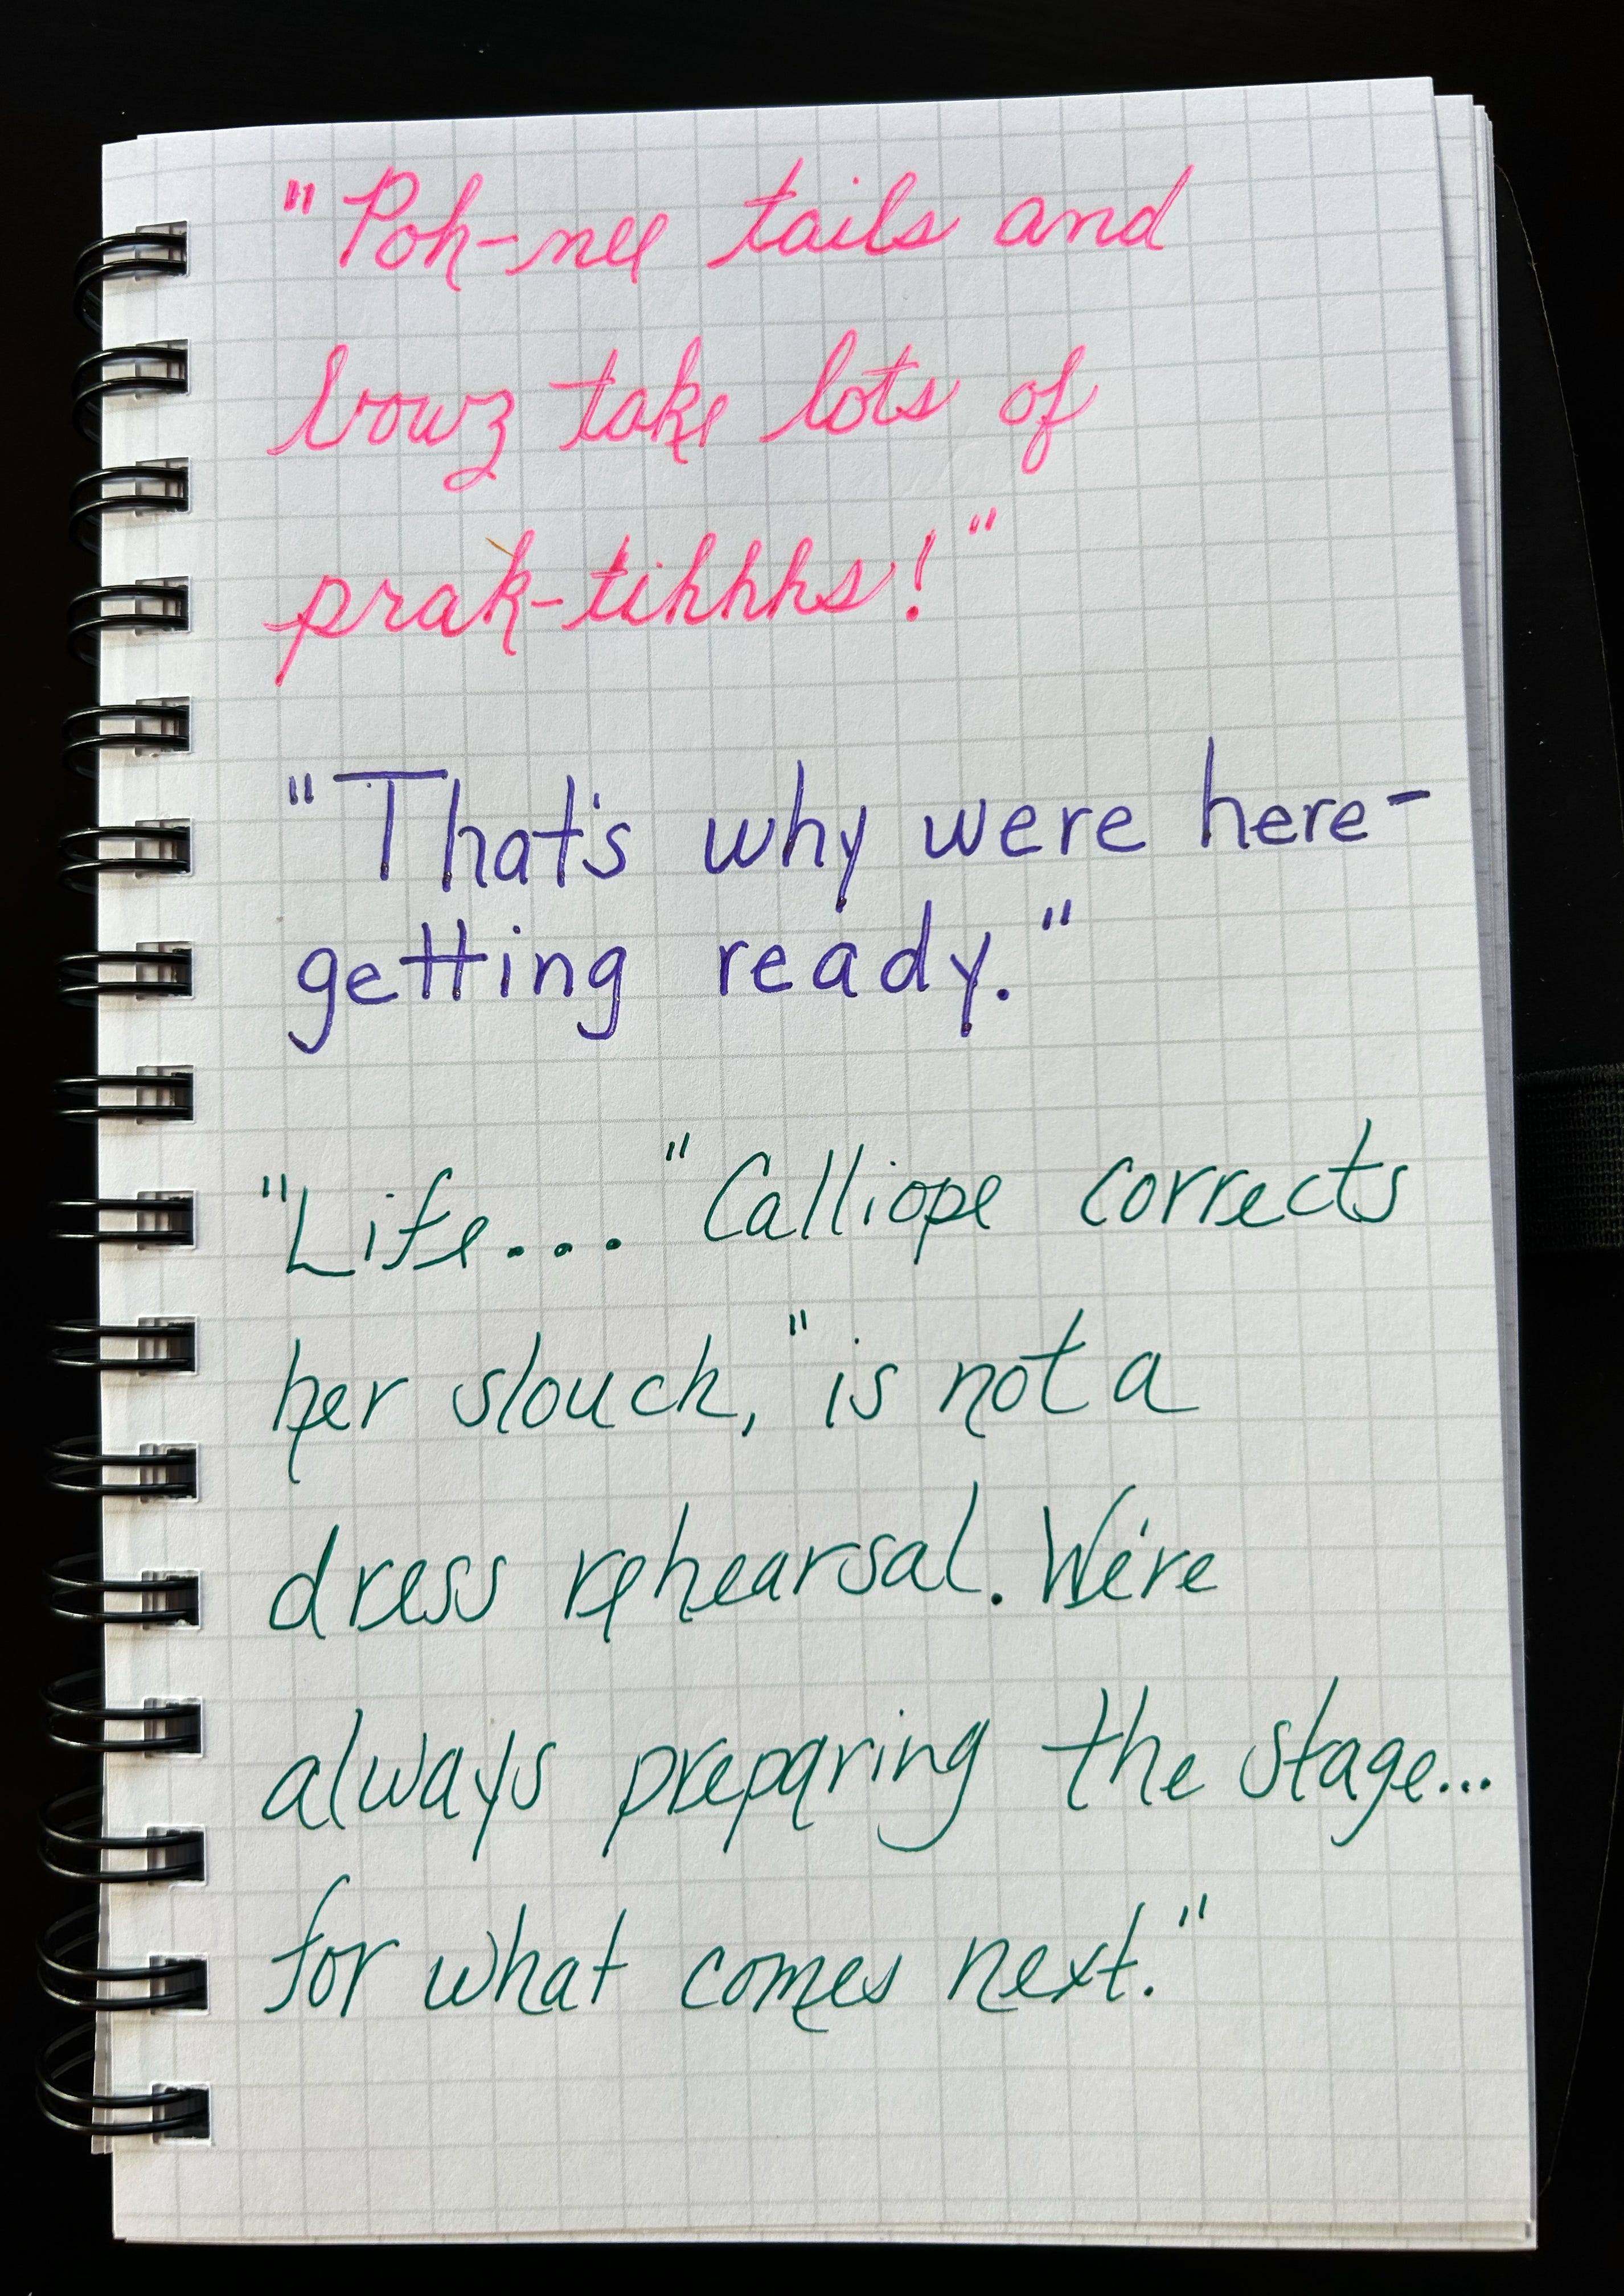 "Poh-nee tails and
bowz take lots of
prak-tihhhs!"
"That's why were here-
getting ready."
"Life..." Calliope corrects
her slouch, "is not a
dress rehearsal. We're
always preparing the stage...
for what comes next."